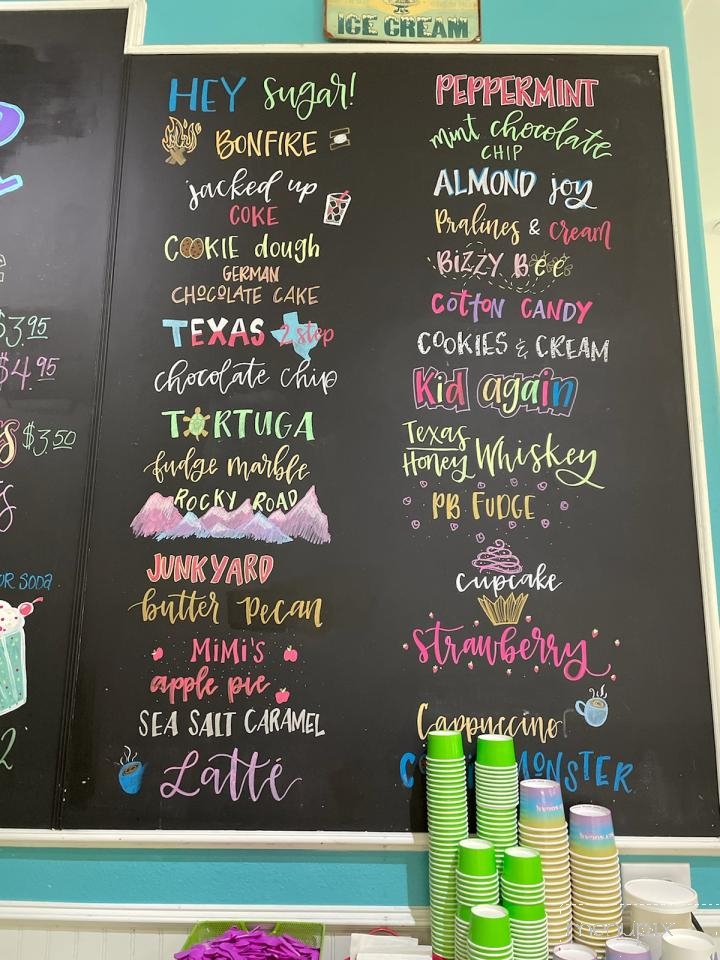 ICE CREAM
$3.95
$4.95
$3.50
OR SODA
HEY Sugar!
BONFIRE
jacked up
COKE
COOKIE dough
GERMAN
CHOCOLATE CAKE
TEXAS 2 step
chocolate chip
TORTUGA
fudge marble
ROCKY ROAD
JUNKYARD
butter pecan
MiMi's
apple pie
SEA SALT CARAMEL
Latté
PEPPERMINT
mint chocolate
CHIP
ALMOND joy
Pralines & cream
BIZZY Bee
COTTON CANDY
COOKIES & CREAM
Kid again
Texas
Honey Whiskey
PB FUDGE
cupcake
strawberry
Cappuccino
MONSTER